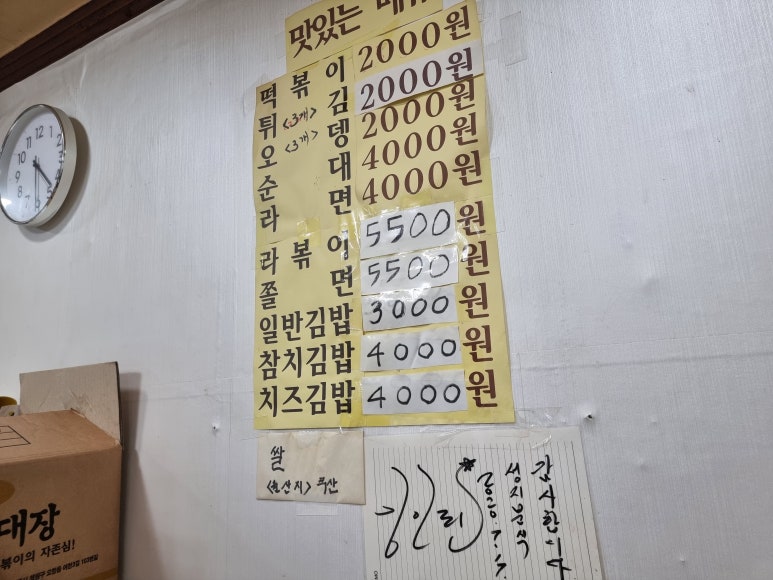 맛있는 메뉴
떡볶이 2000원
튀김 <3개> 2000원
오뎅 <3개> 2000원
순대 4000원
라면 4000원
라볶이 5500원
쫄면 5500원
일반김밥 3000원
참치김밥 4000원
치즈김밥 4000원
쌀
<원산지> 국산
감사합니다
대장
볶이의 자존심!
12
11
10
9
8
7
6